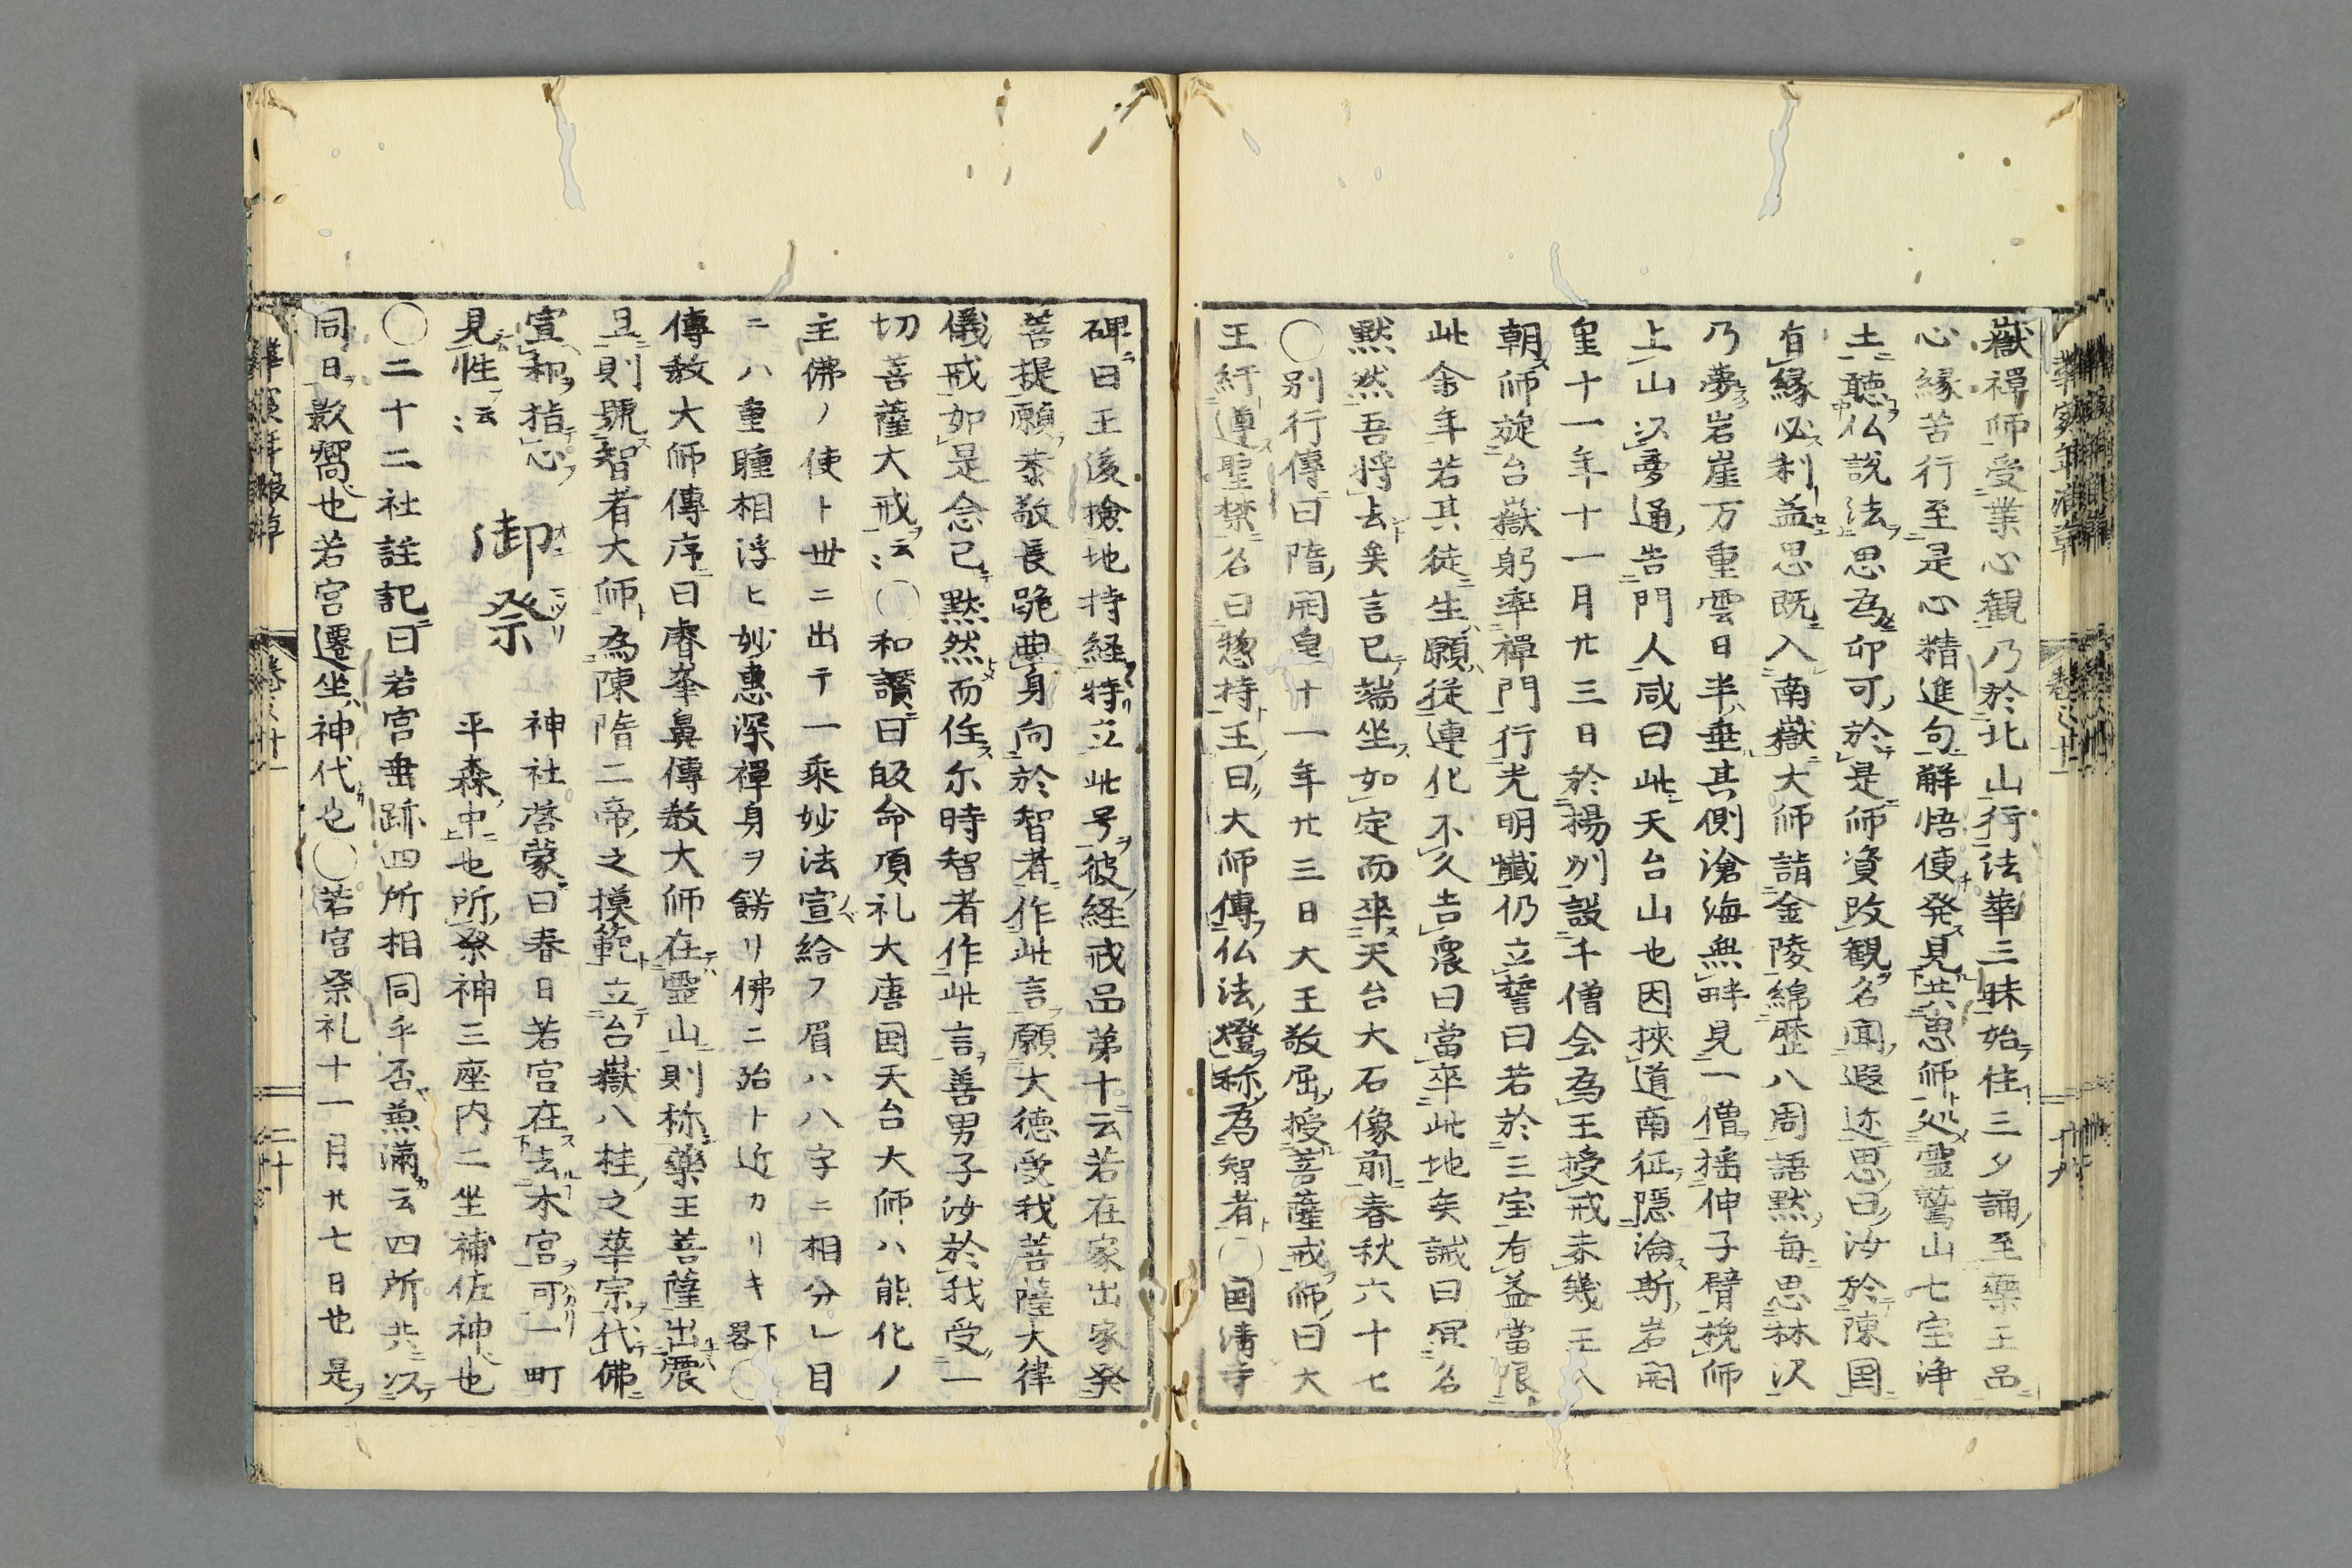 嶽禪師受業心観乃於北山行法華三昧始住三夕誦至藥王品
心縁苦行至是心精進句解悟便発見共恵師処霊鷲山七宝浄
土聴仏説法思為印可於是師資改観名聞遐迩思曰汝於陳国
有縁必利益思既入南嶽大師詣金陵綿歴八周語黙毎思林沢
乃夢岩崖万重雲日半垂其側滄海無畔見一僧揺伸手臂挽師
上山以夢通告門人咸曰此天台山也因挾道南征隠淪斯岩開
皇十一年十一月廿三日於揚州設千僧会為王授戒未幾王入
朝師旋台嶽躬率禪門行光明懺仍立誓曰若於三宝有益當限
此余年若其徒生願従連化不久告衆曰當卒此地矣誠曰冥名
黙然吾将去矣言已端坐如定而卒天台大石像前春秋六十七
〇別行傳曰隋開皇十一年廿三日大王敬屈授菩薩戒師曰大
王紆遵聖禁名曰惣持王曰大師傳仏法燈称為智者〇国清寺
碑曰王後撿地持経特立此号彼経戒品第十云若在家出家発
菩提願恭敬長跪曲身向於智者作此言願大徳受我菩薩大律
儀戒如是念已黙然而住尓時智者作此言善男子汝於我受一
切菩薩大戒云〻〇和讃曰皈命頂礼大唐国天台大師ハ能化ノ
主佛ノ使ト世ニ出テ一乘妙法宣給フ眉ハ八字ニ相分レ目
ニハ重瞳相浮ヒ妙惠深禪身ヲ餝リ佛ニ殆ト近カリキ下畧〇
傳教大師傳序曰睿峯鼻傳教大師在霊山則称藥王菩薩出震
旦則號智者大師為陳隋二帝之摸範立台嶽八桂之華宗代佛
宣和指心 御祭 神社啓蒙曰春日若宮在去本宮可一町
見性云〻 オンマツリ 平森中也所祭神三座内二坐補佐神也
〇二十二社註記曰若宮垂跡四所相同乎否兼満云四所共以
同日歟窩也若宮遷坐神代也〇若宮祭礼十一月廿七日也是
卷之廿一
二十